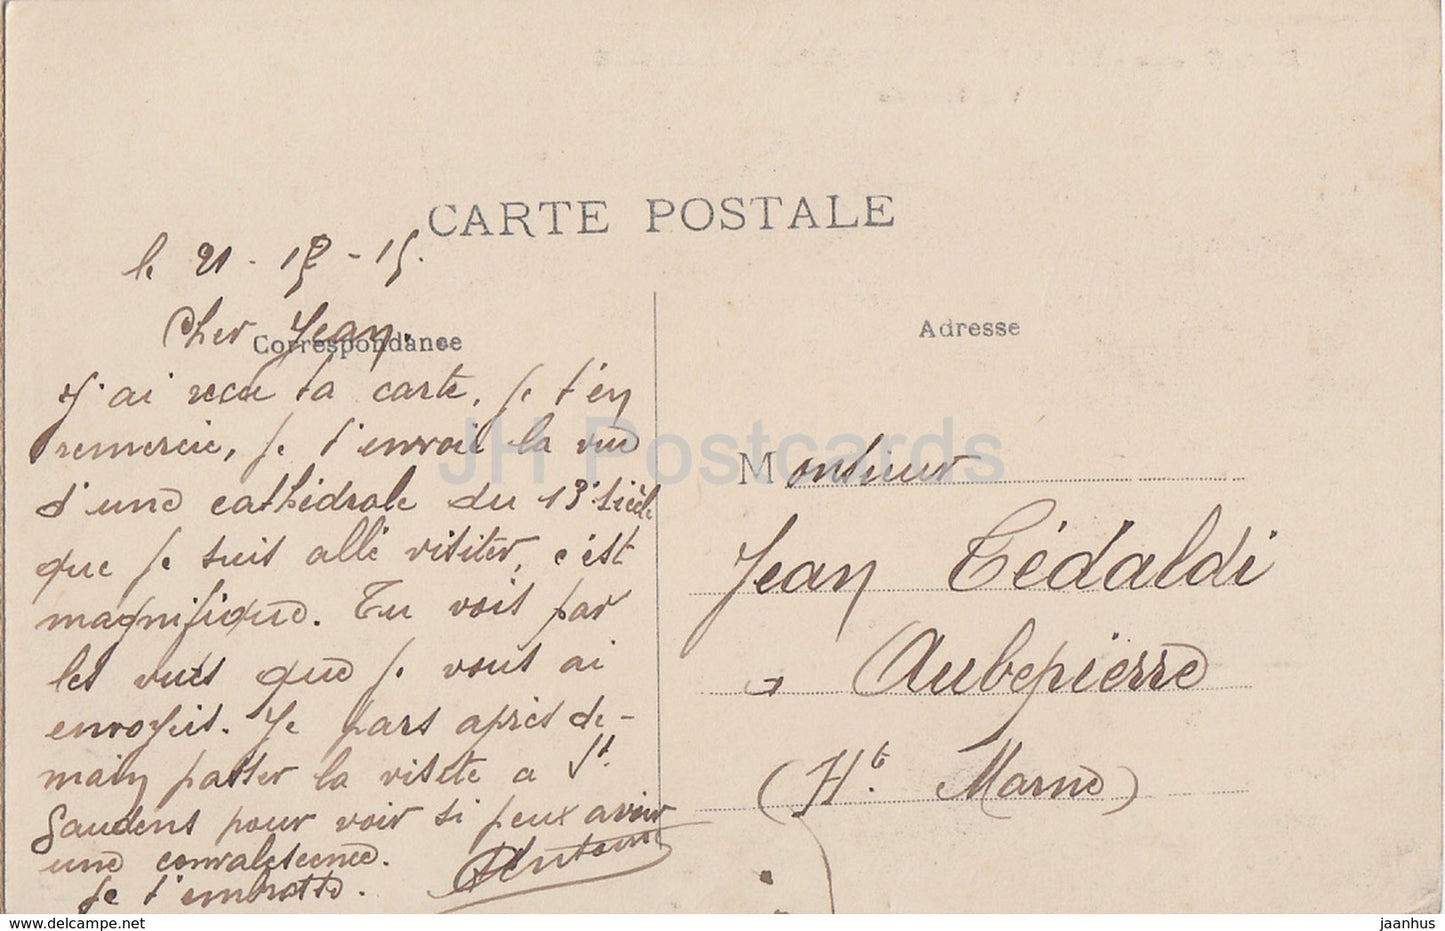 CARTE POSTALE
le 21 - 12 - 15.
Cher Jean.
Correspondance
J'ai recu ta carte, je t'en
remercie, je t'envoie la vue
d'une cathédrale du 13e siècle
que je suis allé visiter, c'est
magnifique. Tu vois par
les vues que je vous ai
envoyeis. Je pars après de-
main passer la visite a St.
Gaudens pour voir si peux avoir
une convalescence.
Je t'embrasse.
Antoine
Adresse
Monsieur
Jean Tédaldi
a Aubepierre
(Hte Marne)
JH Postcards
delcampe.net
jaanhus